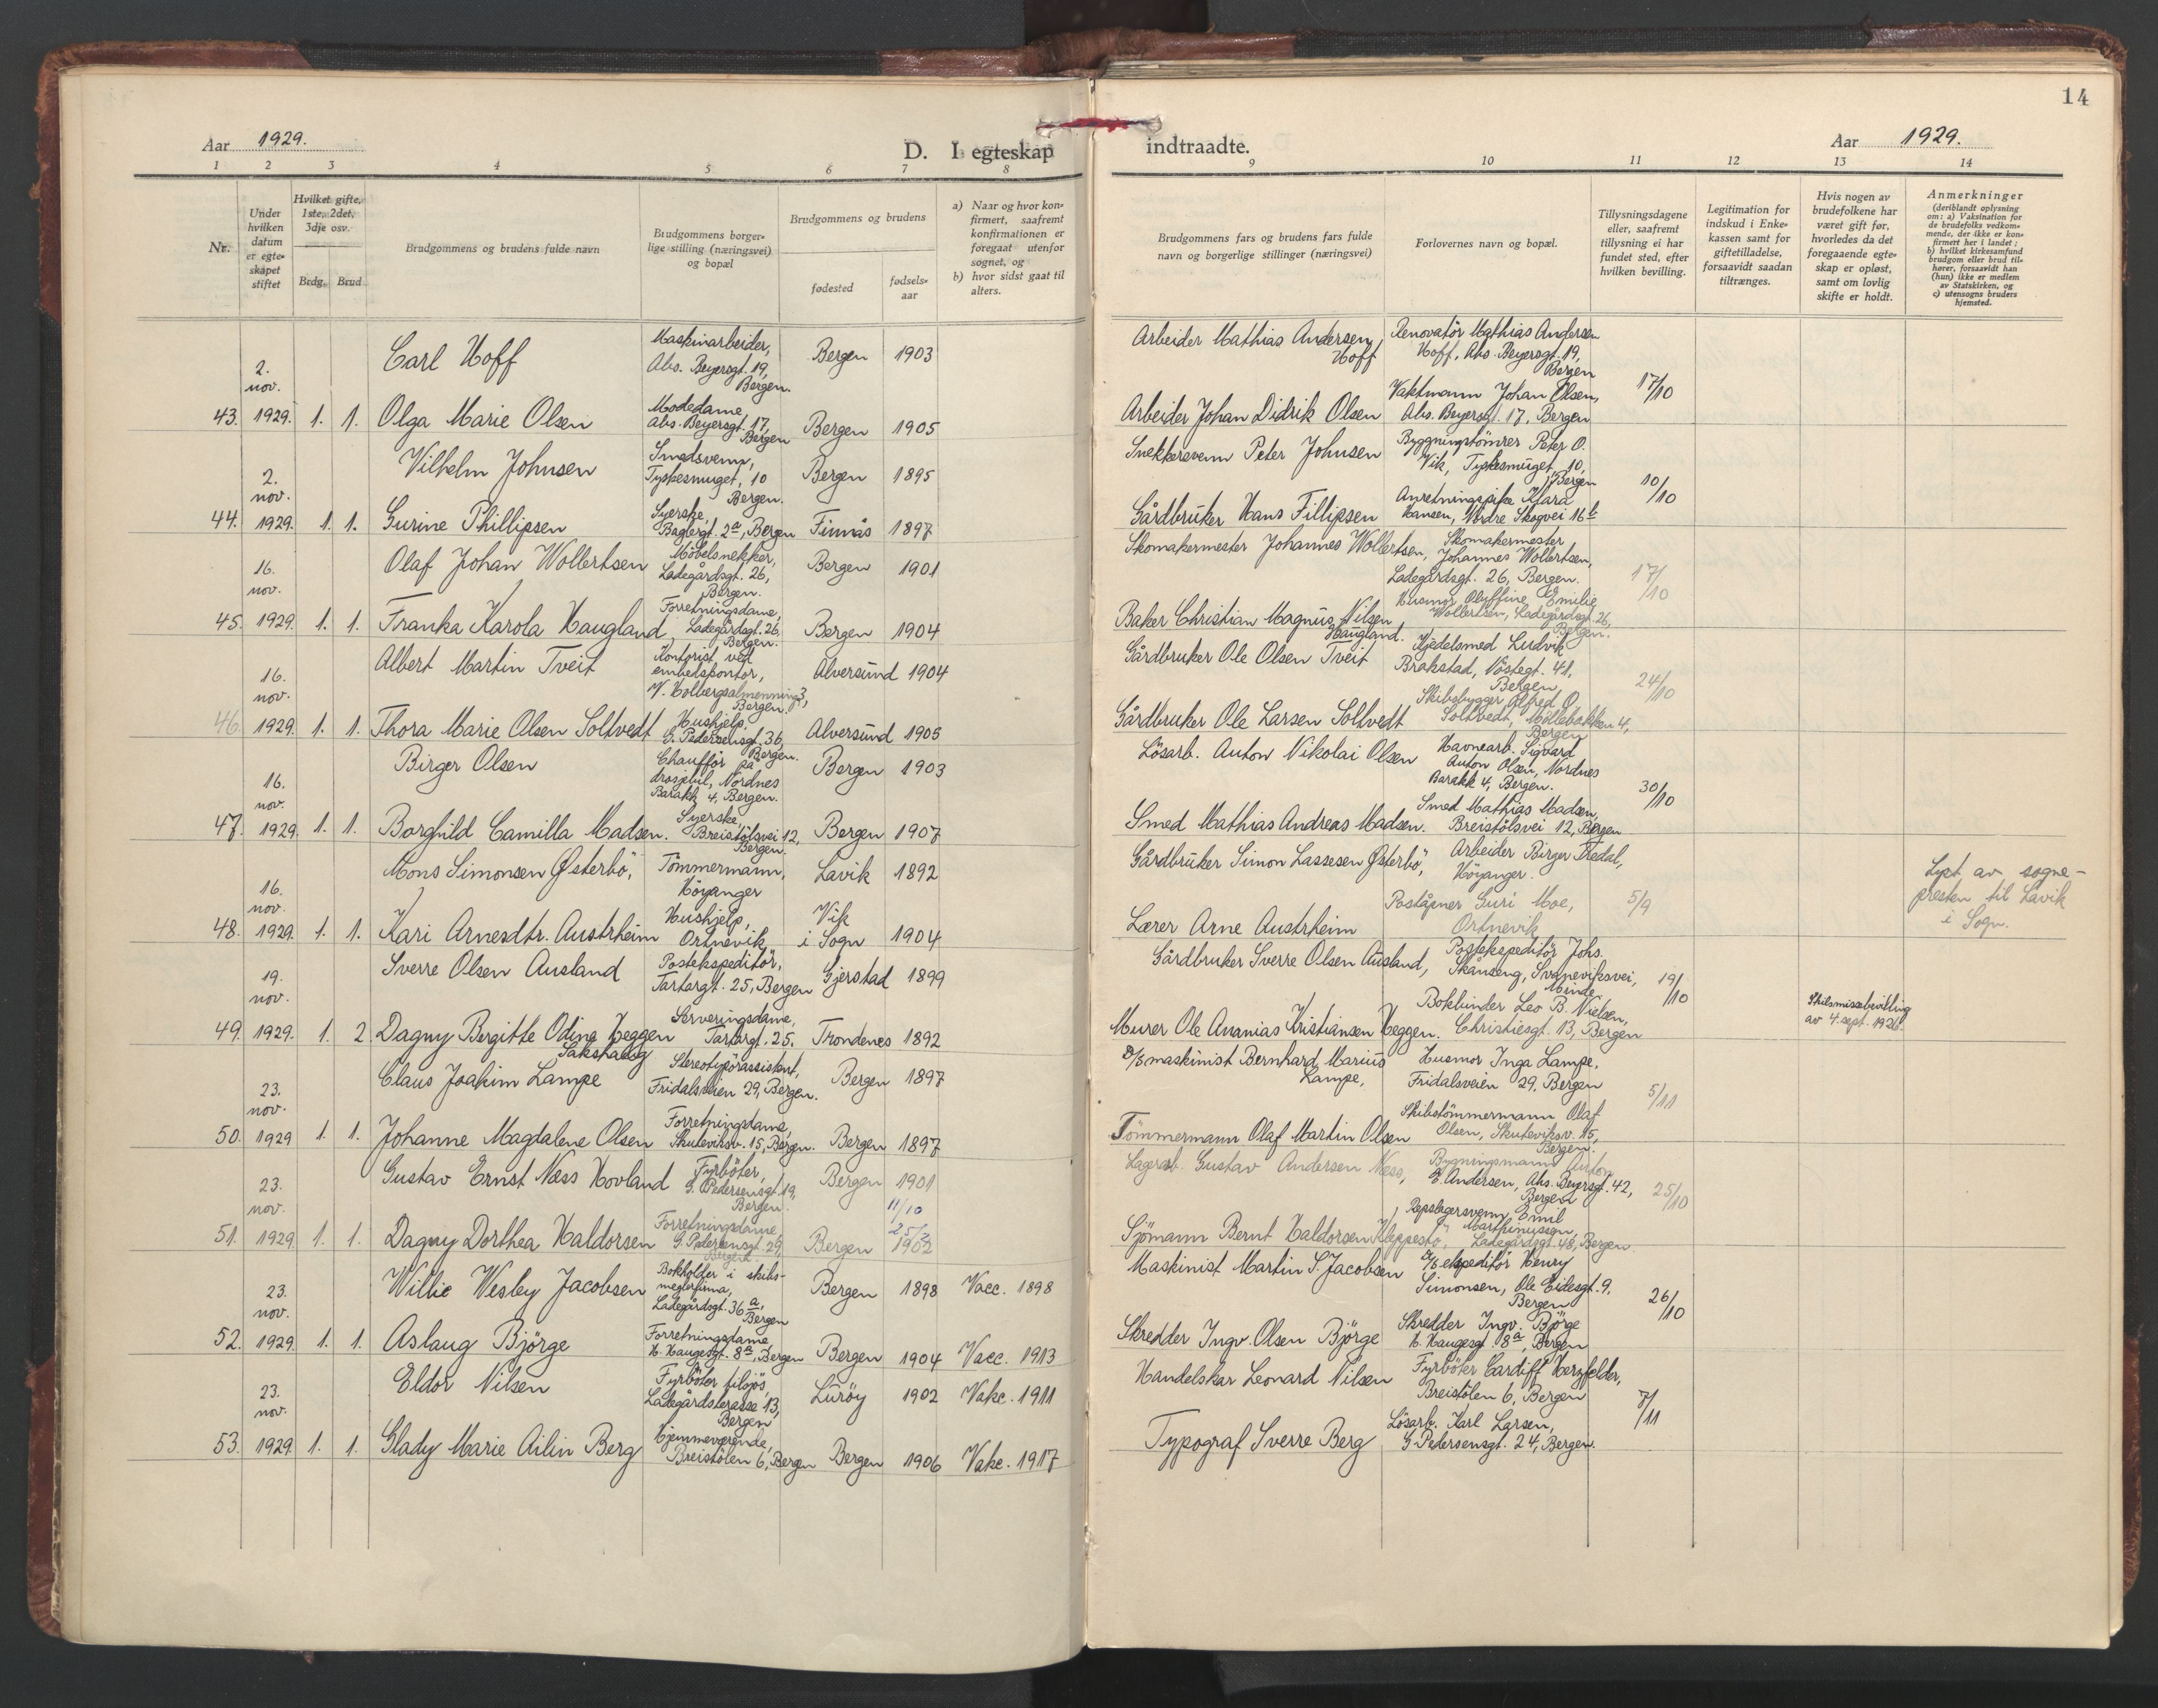 14
Aar 1929.
D. I egteskap
indtraadte.
Aar 1929.
1 2 3 4 5 6 7 8
9 10 11 12 13 14
Nr.
Under
hvilken
datum
er egte-
skapet
stiftet
Hvilket gifte,
1ste, 2det,
3dje osv.
Brdg. Brud
Brudgommens og brudens fulde navn
Brudgommens borger-
lige stilling (næringsvei)
og bopæl
Brudgommens og brudens
fødested
fødsels-
aar
a) Naar og hvor kon-
firmert, saafremt
konfirmationen er
foregaat utenfor
sognet, og
b) hvor sidst gaat til
alters.
Brudgommens fars og brudens fars fulde
navn og borgerlige stillinger (næringsvei)
Forlovernes navn og bopæl.
Tillysningsdagene
eller, saafremt
tillysning ei har
fundet sted, efter
hvilken bevilling.
Legitimation for
indskud i Enke-
kassen samt for
giftetilladelse,
forsaavidt saadan
tiltrænges.
Hvis nogen av
brudefolkene har
været gift før,
hvorledes da det
foregaaende egte-
skap er opløst,
samt om lovlig
skifte er holdt.
Anmerkninger
(deriblandt oplysning
om: a) Vaksination for
de brudefolks vedkom-
mende, der ikke er kon-
firmert her i landet;
b) hvilket kirkesamfund
brudgom eller brud til-
hører, forsaavidt han
(hun) ikke er medlem
av Statskirken, og
c) utensogns bruders
hjemsted.
43. 2. nov. 1929. 1. 1.
Carl Hoff
Maskinarbeider,
Abs. Beyersgt. 19,
Bergen.
Bergen 1903
Arbeider Mathias Andersen,
Hoff
Renovatör Mathias Andersen
Hoff, Abs. Beyersgt. 19,
Bergen
17/10
Olga Marie Olsen
Modedame,
Abs. Beyersgt. 17,
Bergen
Bergen 1905
Arbeider Johan Didrik Olsen
Vaktmann Johan Olsen,
Abs. Beyersgt. 17, Bergen
44. 2. nov. 1929. 1. 1.
Vilhelm Johnsen
Smedsvenn,
Tyskesmuget, 10
Bergen.
Bergen 1895
Snekkersvenn Peter Johnsen
Byggningstömrer Peter O.
Vik, Tyskesmuget 10,
Bergen
10/10
Gurine Phillipsen
Syerske,
Baglergt. 2a, Bergen
Finnås 1897
Gårdbruker Hans Fillipsen
Anretningspike Klara
Hansen, Nordre Skogvei 16b
45. 16. nov. 1929. 1. 1.
Olaf Johan Wollertsen
Möbelsnekker,
Ladegårdsgt. 26,
Bergen.
Bergen 1901
Skomakermester Johannes Wollertsen,
Skomakermester
Johannes Wollertsen,
Ladegårdsgt. 26, Bergen.
17/10
Franka Karola Haugland,
Forretningsdame,
Ladegårdsgt. 26,
Bergen.
Bergen 1904
Baker Christian Magnus Nilsen
Haugland.
Husmor Oluffine Emilie
Wollertsen, Ladegårdsgt. 26,
Bergen.
46. 16. nov. 1929. 1. 1.
Albert Martin Tveit
Kontorist ved
embedskontor,
V. Holbergsalmenning 3,
Bergen.
Alversund 1904
Gårdbruker Ole Olsen Tveit
Kjedelsmed Ludvik
Brakstad, Nöstegt. 41,
Bergen,
24/10
Thora Marie Olsen Soltvedt
Hushjelp,
G. Pedersensgt. 36,
Bergen.
Alversund 1905
Gårdbruker Ole Larsen Soltvedt
Skibsbygger Alfred O.
Soltvedt, Möllebakken 4,
Bergen
47. 16. nov. 1929. 1. 1.
Birger Olsen
Chaufför på
drosjebil, Nordnes
Barakk 4, Bergen.
Bergen 1903
Lösarb. Anton Nikolai Olsen
Havnearb. Sigvard
Anton Olsen, Nordnes
Barakk 4, Bergen.
30/10
Borghild Camilla Madsen.
Syerske,
Breistölsvei 12,
Bergen.
Bergen 1907
Smed Mathias Andreas Madsen.
Smed Mathias Madsen,
Breistölsvei 12, Bergen
48. 16. nov. 1929. 1. 1.
Mons Simonsen Österbö,
Tömmermann,
Höyanger
Lavik 1892
Gårdbruker Simon Lassesen Österbö,
Arbeider Birger Tredal,
Höyanger.
5/9
Lyst av sogne-
presten til Lavik
i Sogn.
Kari Arnesdtr. Austrheim
Hushjelp,
Ortnevik
Vik
i Sogn 1904
Lærer Arne Austrheim
Poståpner Guri Moe,
Ortnevik
49. 19. nov. 1929. 1. 2
Sverre Olsen Ausland
Postekspeditör,
Tartargt. 25, Bergen
Gjerstad 1899
Gårdbruker Sverre Olsen Ausland,
Postekspeditör Johs.
Skånseng, Svaneviksvei,
Minde
19/10
Dagny Bergitte Odina Heggen
Sakshaug
Serveringsdame,
Tartargt. 25.
Trondenes 1892
Murer Ole Ananias Kristiansen Heggen.
Bokbinder Leo B. Nielsen,
Christiesgt. 13, Bergen
Skilsmissebevilling
av 4. sept. 1926.
50. 23. nov. 1929 1. 1.
Claus Joakim Lampe
Stereotypörassistant,
Fridalsveien 29, Bergen.
Bergen 1897
D/S maskinist Bernhard Marius
Lampe,
Husmor Inga Lampe,
Fridalsveien 29, Bergen
5/11
Johanne Magdalene Olsen
Forretningsdame,
Skuteviksv. 15, Bergen.
Bergen 1897
Tömmermann Olaf Martin Olsen
Skibstömmermann Olaf
Olsen, Skuteviksv. 15,
Bergen.
51. 23. nov. 1929. 1. 1.
Gustav Ernst Næss Hovland
Fyrböter,
G. Pedersensgt. 19,
Bergen.
Bergen 1901
11/10
Lagerarb. Gustav Andersen Næss,
Bygningsmann Anton
E. Andersen, Abs. Beyersgt. 42,
Bergen
25/10
Dagny Dorthea Haldorsen
Forretningsdame,
G. Pedersensgt. 29,
Bergen
Bergen 1902
Sjömann Bernt Haldorsen Kleppestö,
Repslagersvenn Emil
Marthinussen,
Ladegårdsgt. 48, Bergen.
52. 23. nov. 1929. 1. 1.
Willie Wesley Jacobsen
Bokholder i skibs-
meglerfirma,
Ladegårdsgt. 36a,
Bergen
Bergen 1898 Vacc. 1898
Maskinist Martin S. Jacobsen
D/S ekspeditör Henry
Simonsen, Ole Eidesgt. 9,
Bergen
26/10
Aslaug Björge
Forretningsdame,
H. Haugesgt. 8a, Bergen
Bergen 1904 Vacc. 1913
Skredder Ingv. Olsen Björge
Skredder Ingv. Björge
H. Haugesgt 8a, Bergen
53. 23. nov. 1929. 1. 1.
Eldor Nilsen
Fyrböter tilsjös,
Ladegårdsterasse 13,
Bergen
Luröy 1902 Vakc. 1911
Handelskar Leonard Nilsen
Fyrböter Cardiff Herzfelder,
Breistölen 6, Bergen
7/11
Glady Marie Ailin Berg
Hjemmeværende,
Breistölen 6, Bergen
Bergen 1906 Vakc. 1917
Typograf Sverre Berg
Lösarb. Karl Larsen,
G. Pedersensgt. 24, Bergen.